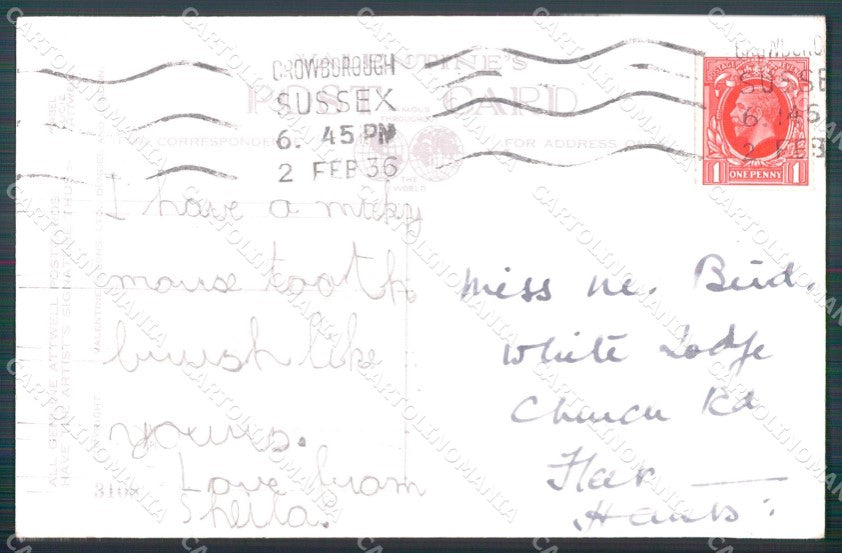 VALENTINE'S
POST CARD
FAMOUS THROUGHOUT
THE WORLD
FOR CORRESPONDENCE
FOR ADDRESS ONLY
CROWBOROUGH
SUSSEX
6. 45 PM
2 FEB 36
CROWBORO
SUSSE
6 45
2 FEB
1 ONE PENNY 1
ALL GENUINE ATTWELL POSTCARDS
HAVE THE ARTIST'S SIGNATURE THUS:-
VALENTINE
3108
I have a micky
mouse tooth
brush like
yours.
Love from
Sheila.
Miss M. Bird.
White Lodge
Church Rd
Fleet
Hants.
CARTOLINOMANIA